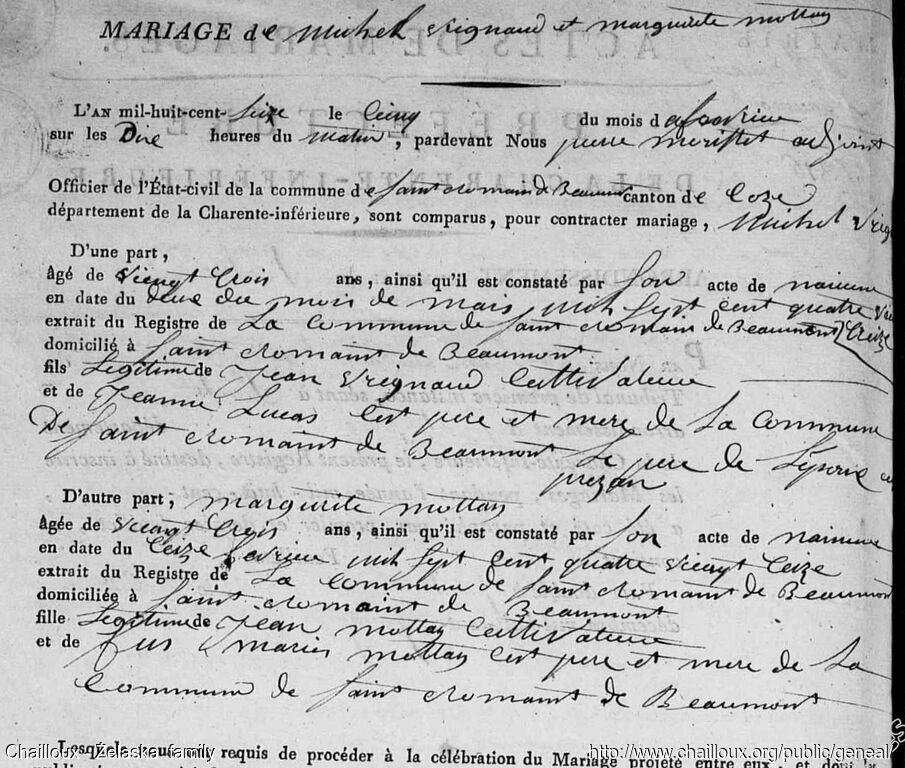 MARIAGE de michel vrignaud et marguerite mottay
L'AN mil-huit-cent-seize le cinq du mois d
sur les Dixe heures du matin, pardevant Nous pierre adjoint
Officier de l'État-civil de la commune de saint romain de Beaumont canton de Coze
département de la Charente-inférieure, sont comparus, pour contracter mariage, Michel vrig
D'une part,
âgé de viengt trois ans, ainsi qu'il est constaté par son acte de
en date du deux du mois de mars mil sept cent quatre vie
extrait du Registre de La commune de saint romain de Beaumont treize
domicilié à saint romaint de Beaumont
fils Legitime de Jean vrignaud cultivateur
et de Jeanne Lucas ces pere et mere de La commune
De saint romaint de Beaumont Le pere de
prezan
D'autre part, marguerite mottay
Âgée de vreingt trois ans, ainsi qu'il est constaté par son acte de
en date du treize fevrier mil sept cent quatre vreingt treize
extrait du Registre de La commune de saint romaint de Beaumont
domiciliée à saint romaint de Beaumont
fille Legitime de Jean mottay cultivateur
et de fus marie mottay ces pere et mere de La
commune de saint romaint de Beaumont
Lesquels requis de procéder à la célébration du Mariage projeté entre eux, et dont
Chailloux - Zelaska family
http://www.chailloux.org/public/geneal